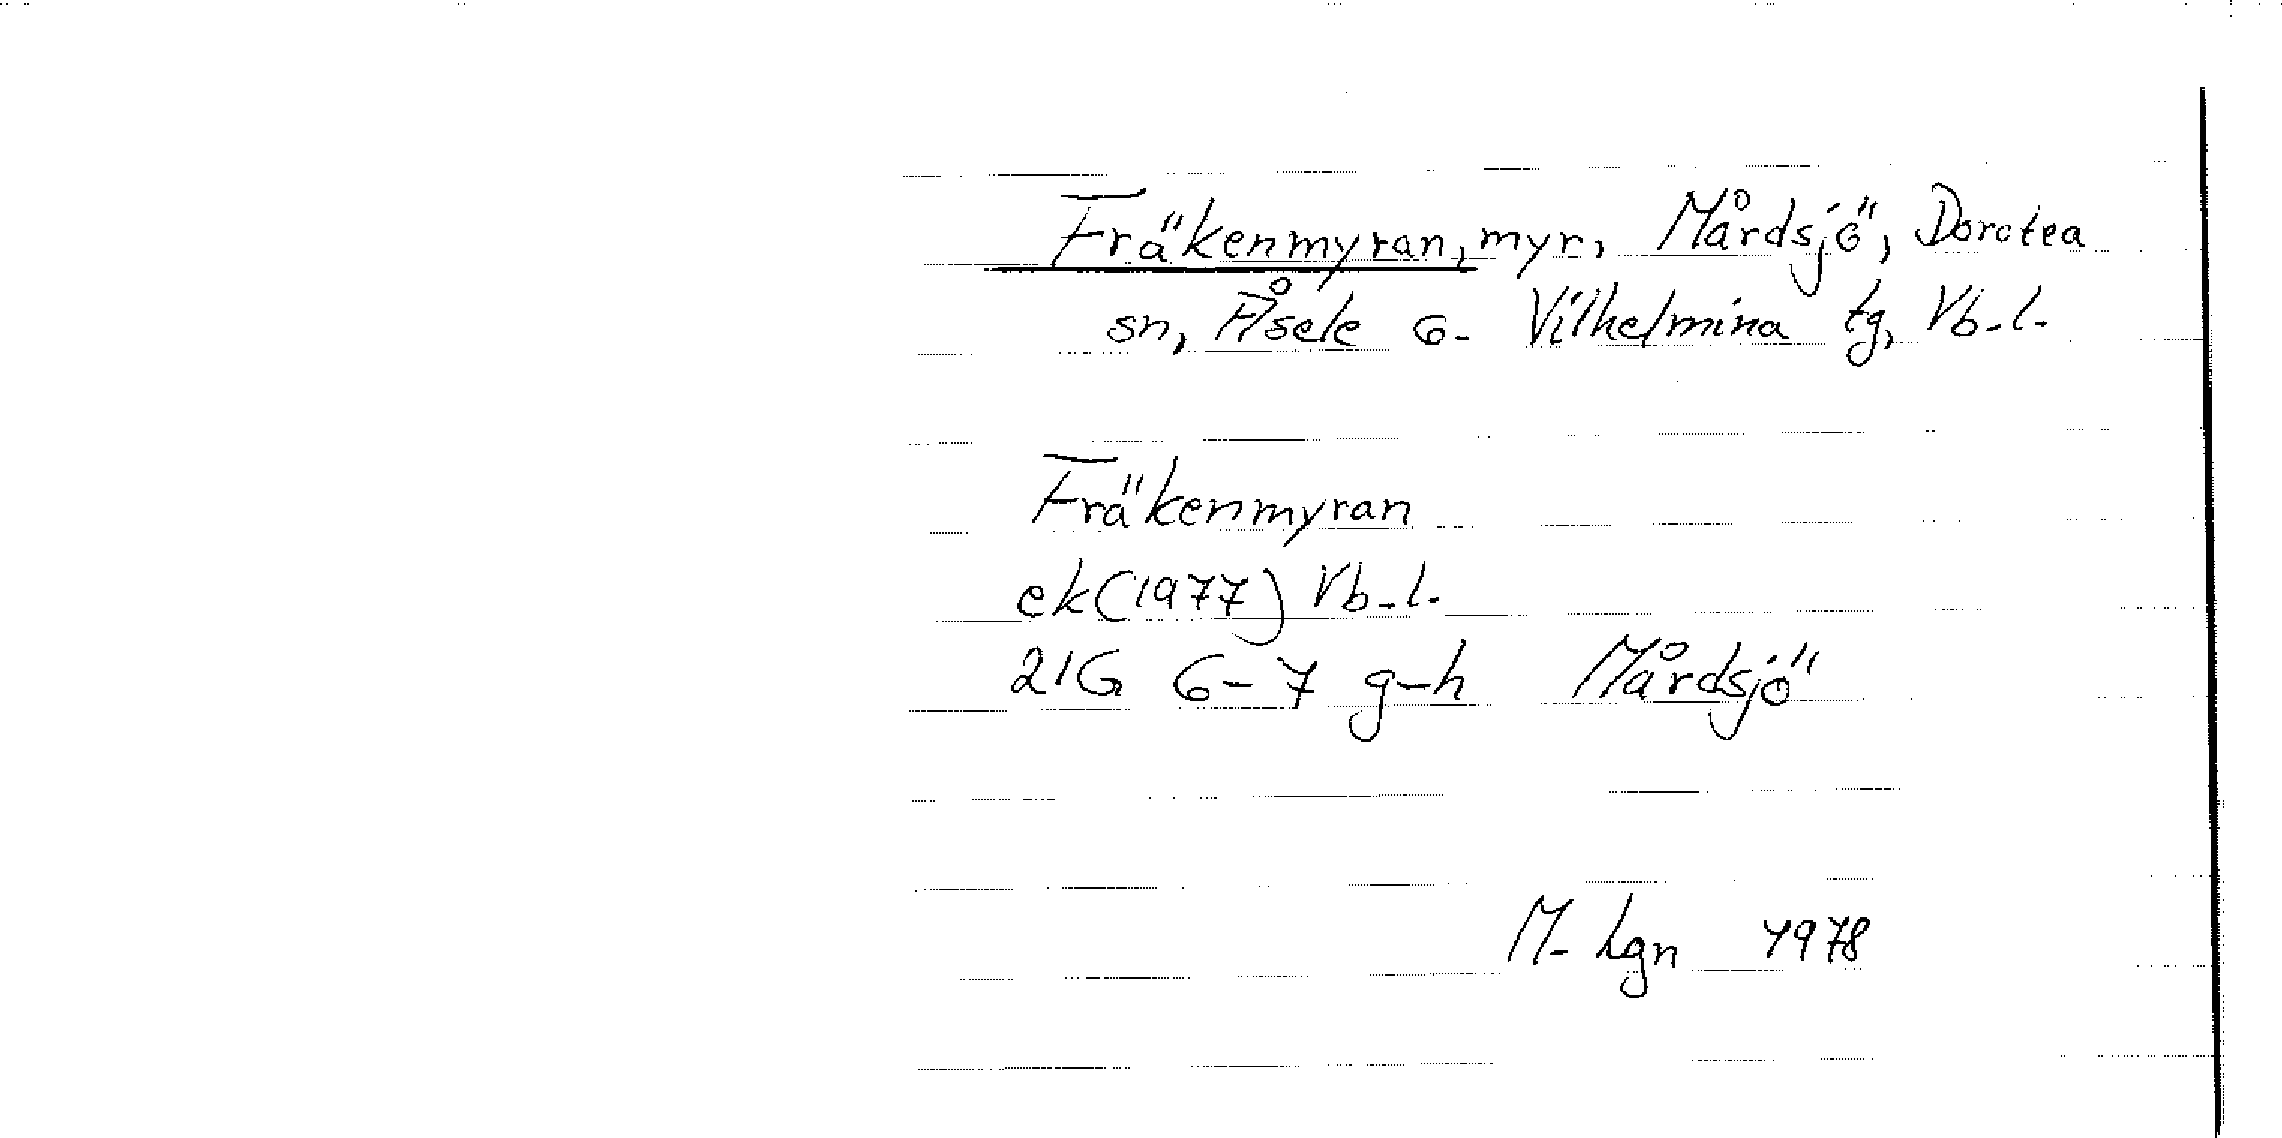 Fräkenmyran, myr, Mårdsjö, Dorotea
sn, Åsele o. Vilhelmina tg, Vb.l.
Fräkenmyran
ek(1977) Vb.l.
21G 6-7 g-h Mårdsjö
M. Lgn 1978